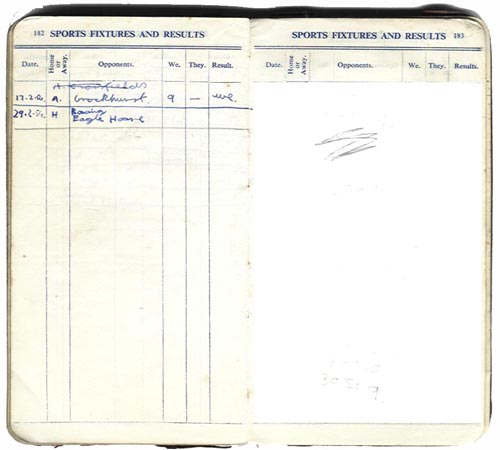 182 SPORTS FIXTURES AND RESULTS
Date. Home or Away. Opponents. We. They. Result.
A. Crossfields
A. Crockhurst. 9 — we.
H Boxing
Eagle House
SPORTS FIXTURES AND RESULTS 183
Date. Home or Away. Opponents. We. They. Results.